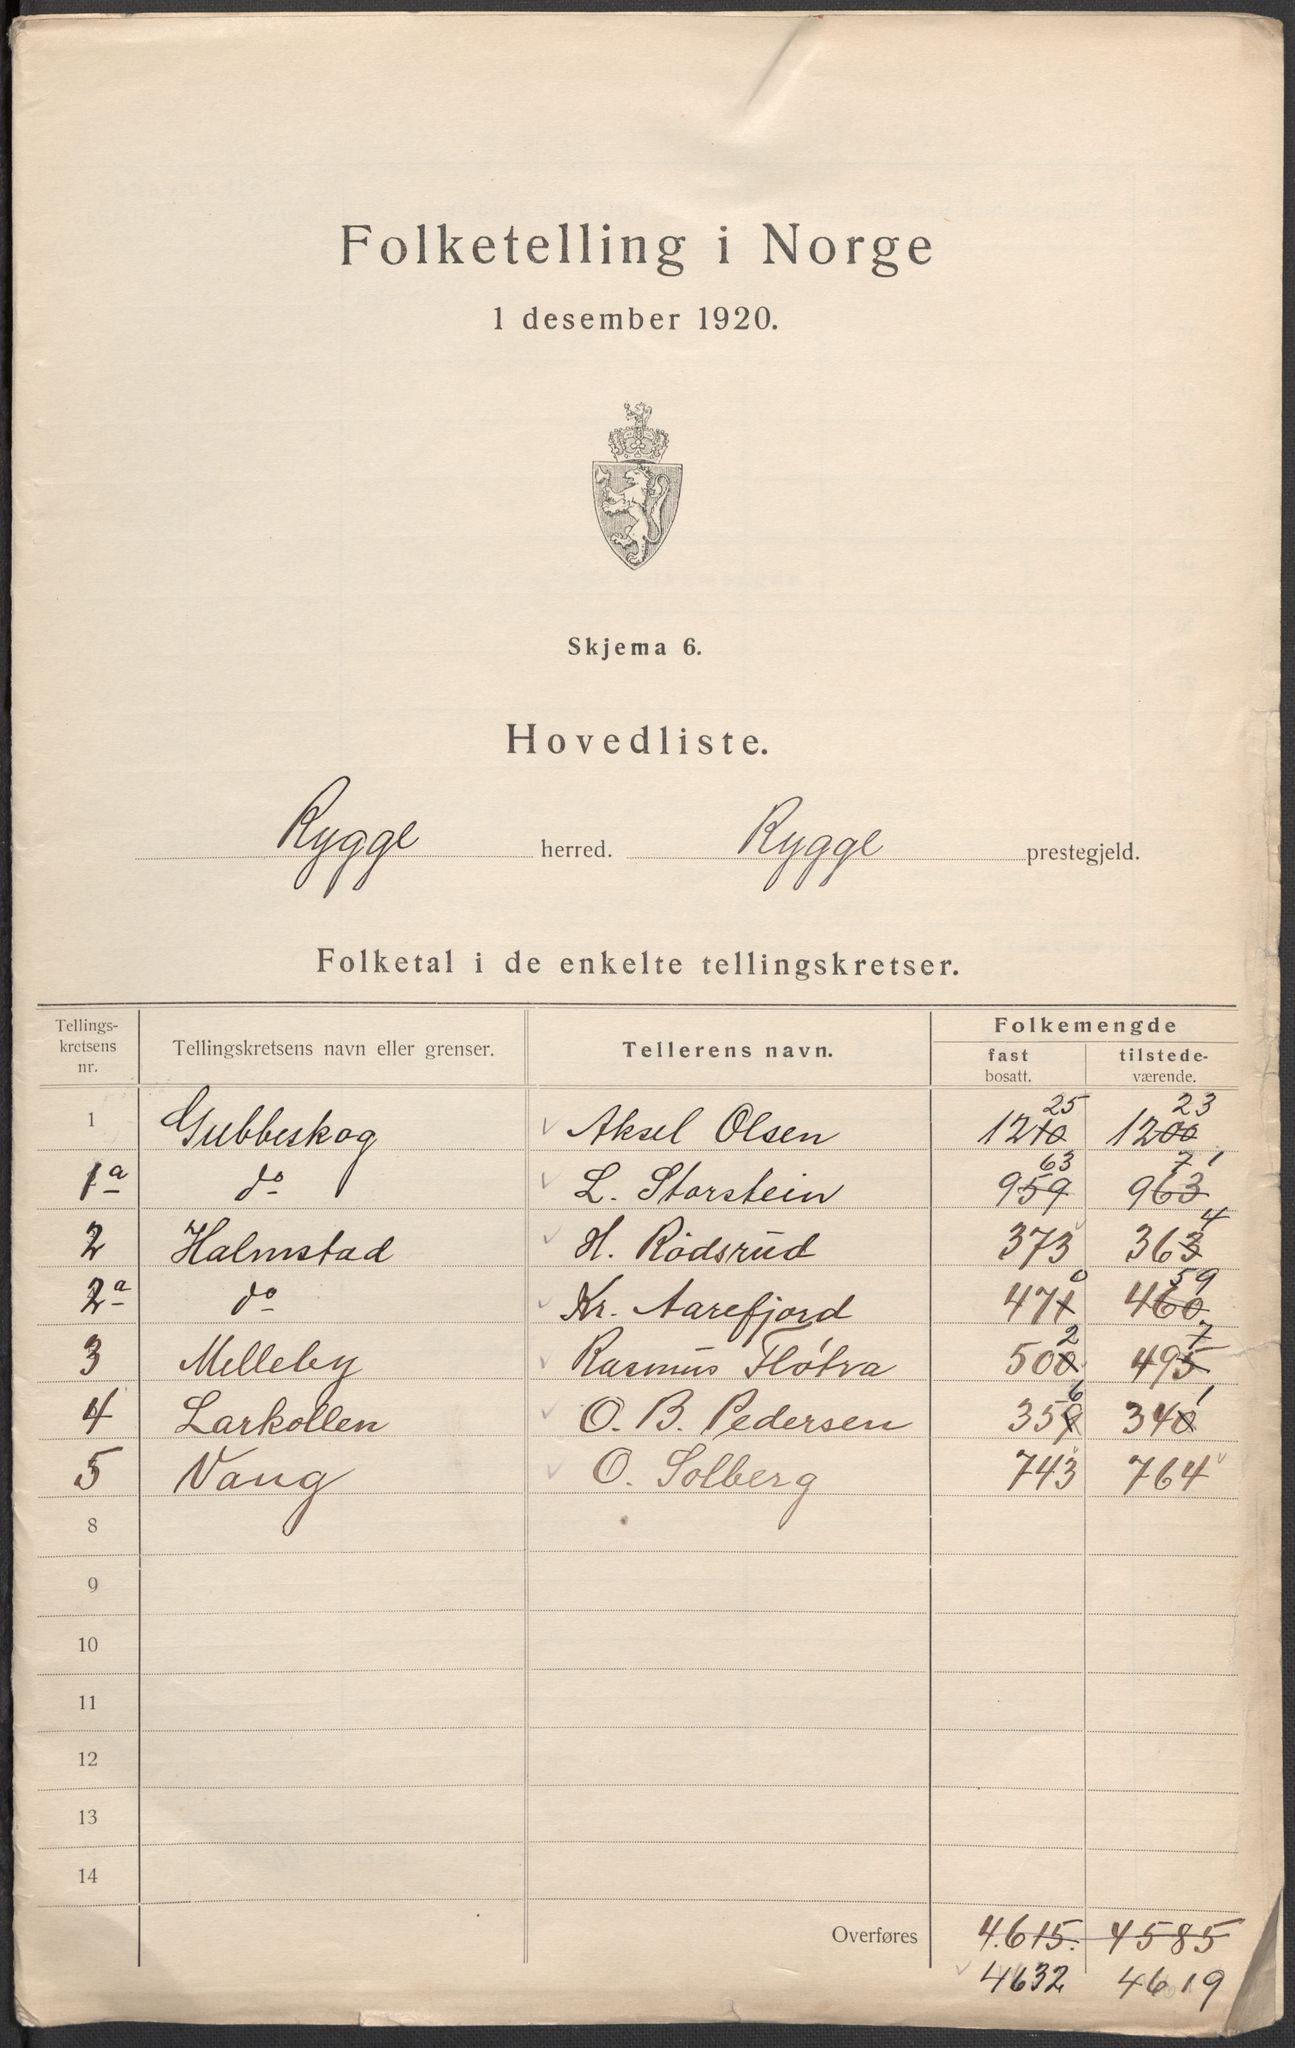 Folketelling i Norge
1 desember 1920.
Skjema 6.
Hovedliste.
Rygge herred. Rygge prestegjeld.
Folketal i de enkelte tellingskretser.
Tellings-kretsens nr. Tellingskretsens navn eller grenser. Tellerens navn. Folkemengde fast bosatt. tilstede-værende.
25 23
1 Gubbeskog Aksel Olsen 1210 1200
63 71
1a do L. Storstein 959 963
4
2 Halmstad H. Rödsrud 373 363
0 59
2a do Kr. Aarefjord 471 460
2 7
3 Melleby Rasmus Fløtra 500 495
6 1
4 Larkollen O. B. Pedersen 359 340
5 Vang O. Solberg 743 764
8
9
10
11
12
13
14
Overføres 4.615. 4585
4632 4619